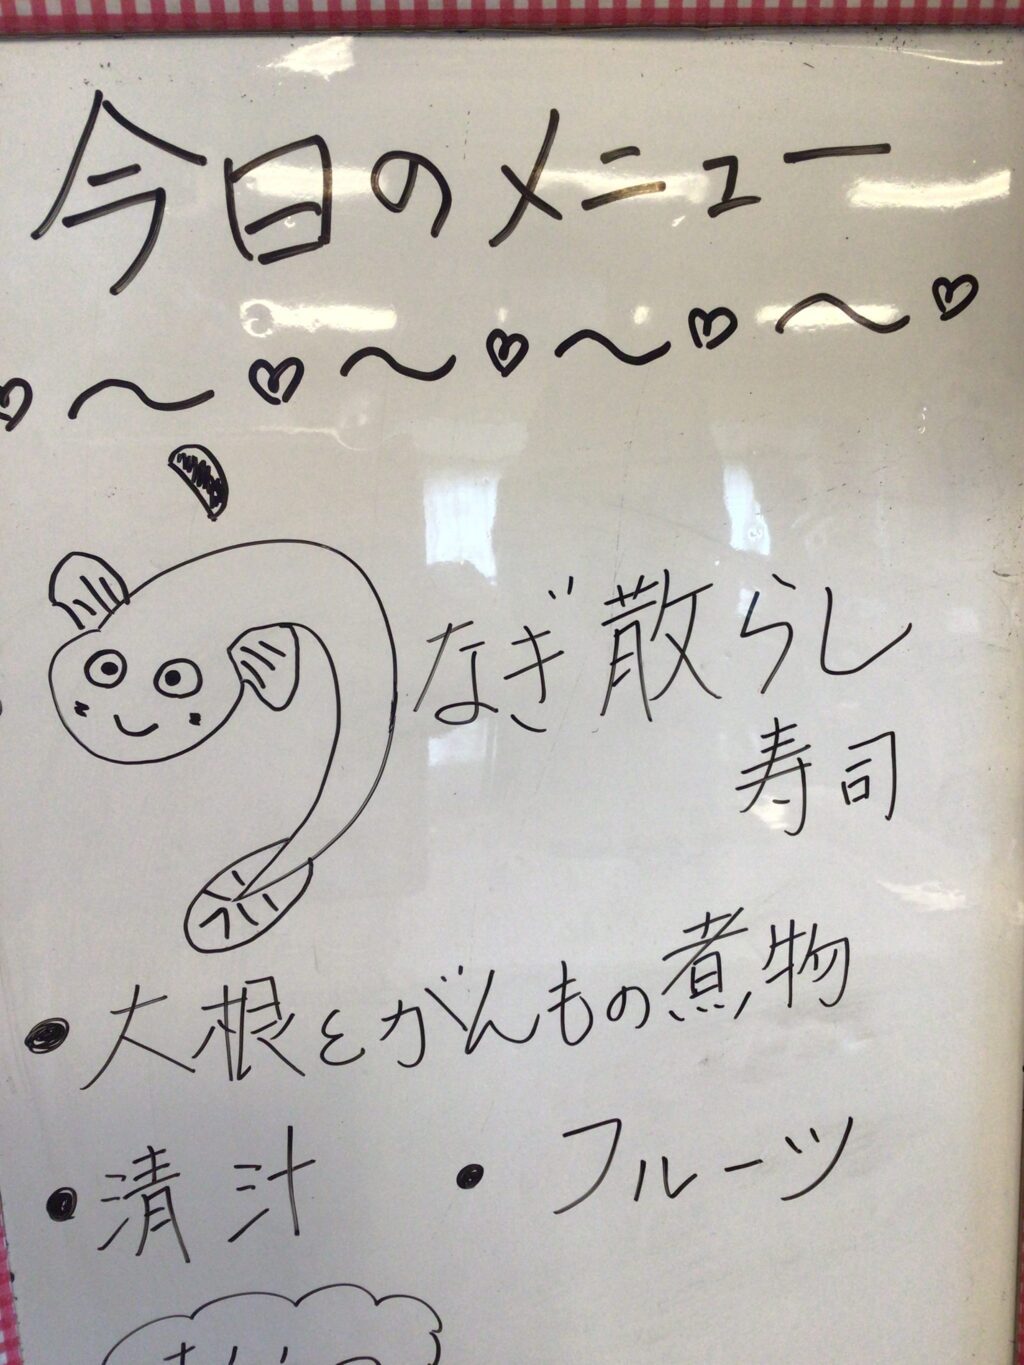 今日のメニュー
なぎ散らし
寿司
・大根とがんもの煮物
・清汁 ・フルーツ